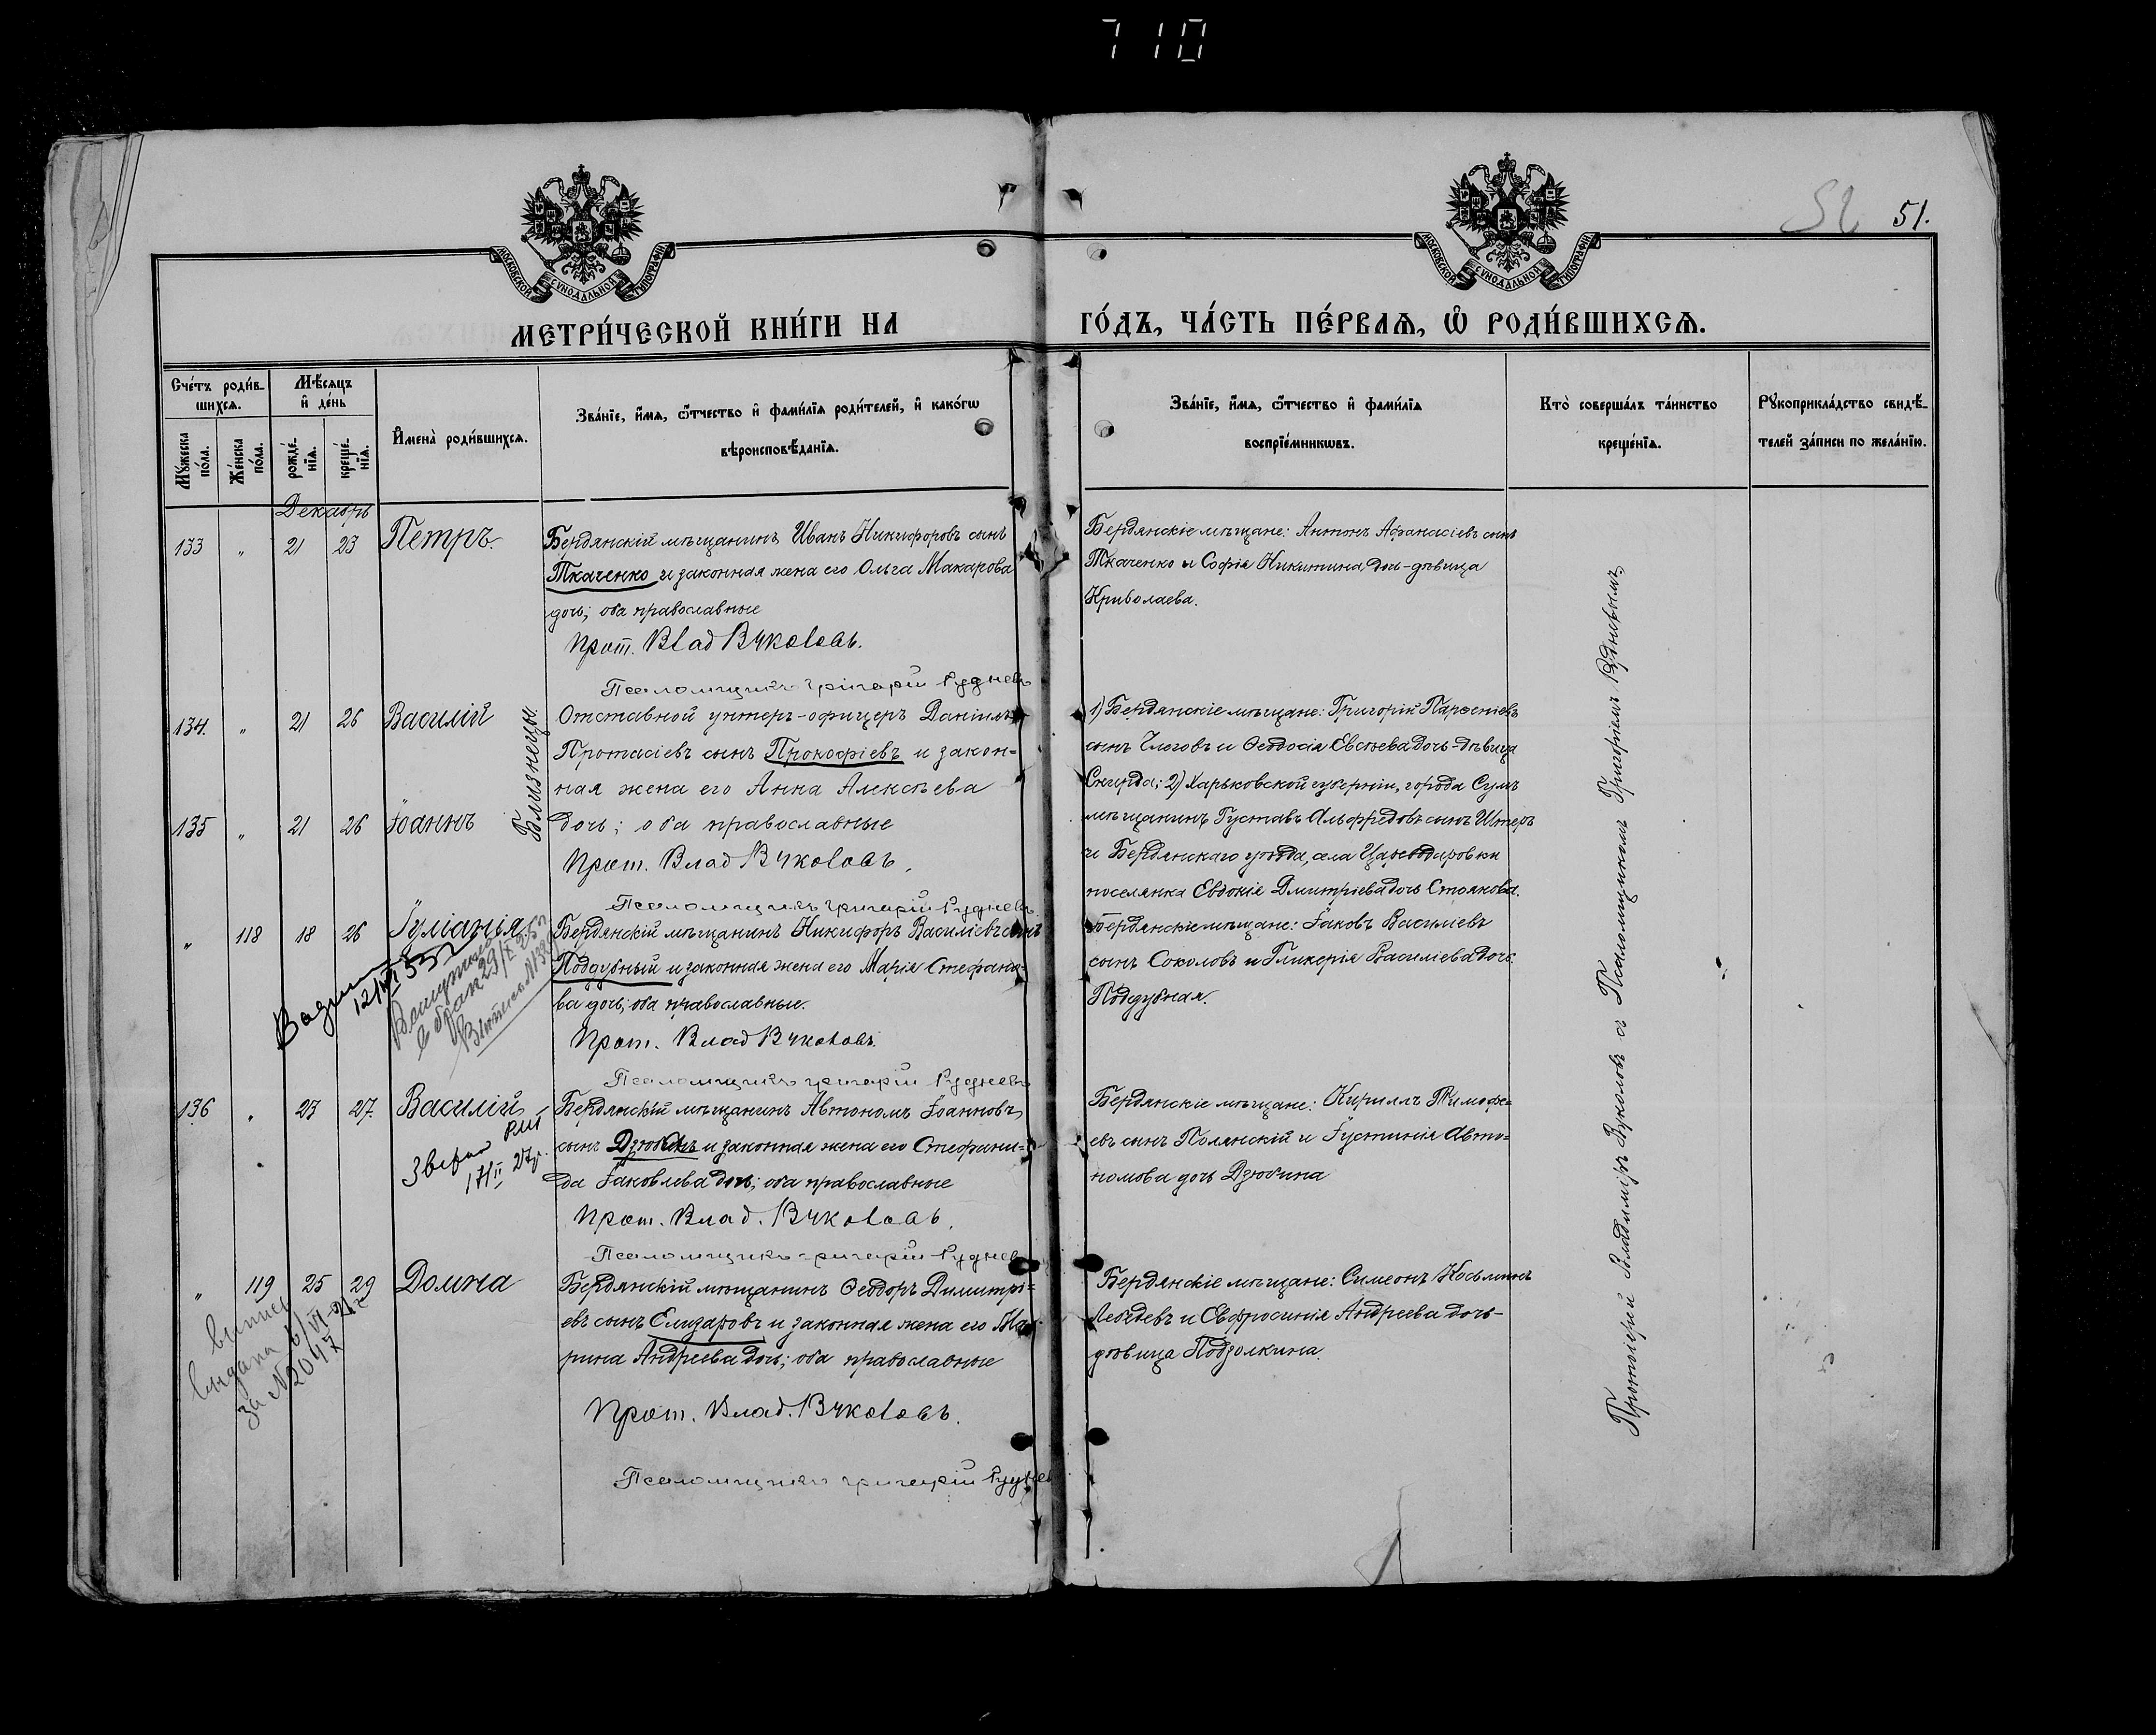 710
МОСКОВСКОЙ СУНОДАЛЬНОЙ ТИПОГРАФІИ
МОСКОВСКОЙ СУНОДАЛЬНОЙ ТИПОГРАФІИ
51.
МЕТРИ́ЧЕСКОЙ КНИ́ГИ НА
ГО́ДЪ, ЧА́СТЬ ПЕ́РВАѦ, Ѡ РОДИ́ВШИХСѦ.
Сче́тъ роди́в-
шихсѧ.
Мѣ́сяцъ
и де́нь
Мꙋжеска по́ла.
Же́нска по́ла.
рожде́-нїѧ.
креще́-нїѧ.
Имена̀ роди́вшихсѧ.
Зва́нїе, и́мѧ, ѻ́тчество и фами́лїѧ роди́телей, и како́гѡ
вѣроисповѣ́данїѧ.
Зва́нїе, и́мѧ, ѻ́тчество и фами́лїѧ
воспрїе́мникѡвъ.
Кто̀ соверша́лъ та́инство
креще́нїѧ.
Рꙋкоприкла́дство свидѣ́-
телей за́писи по жела́нїю.
Декабрь
133 " 21 23 Петръ.
Бердянскій мѣщанинъ Иванъ Никифоровъ сынъ
Ткаченко и законная жена его Ольга Макарова
дочь; оба православные
Прот. Влад Вуколовъ.
Псаломщикъ Григорій Рудневъ
Бердянскіе мѣщане: Антонъ Афанасіевъ сынъ
Ткаченко и Софія Никитина дочь-дѣвица
Криволаева.
134. " 21 26 Василій
135 " 21 26 Іоаннъ
Близнецы.
Отставной унтеръ-офицеръ Даніилъ
Протасіевъ сынъ Прокофіевъ и закон=
ная жена его Анна Алексѣева
дочь; оба православные
Прот. Влад Вуколовъ.
Псаломщикъ Григорій Рудневъ.
1) Бердянскіе мѣщане: Григорій Парѳеніевъ
сынъ и Ѳеодосія Евсѣева дочь-дѣвица
2) Харьковской губерніи, города Сумъ
мѣщанинъ Густавъ Альфредовъ сынъ Штеръ
и Бердянскаго уѣзда, села Цареводаровки
поселянка Евдокія Дмитріева дочь Стоянова.
" 118 18 26 Іуліанія
12/VI 53
29/X 25
Бердянскій мѣщанинъ Никифоръ Василіевъ сынъ
Поддубный и законная жена его Марія Стефано-
ва дочь; оба православные.
Прот. Влад Вуколовъ.
Псаломщикъ Григорій Рудневъ
Бердянскіе мѣщане: Іаковъ Василіевъ
сынъ Соколовъ и Гликерія Василіева дочь
Поддубная.
136 " 23 27. Василій
Бердянскій мѣщанинъ Автономъ Іоанновъ
сынъ Дзюбинъ и законная жена его Стефани=
да Іаковлева дочь; оба православные
Прот. Влад. Вуколовъ.
Псаломщикъ Григорій Рудневъ
Бердянскіе мѣщане: Кириллъ Тимофе=
евъ сынъ Полянскій и Іустинія Авто=
номова дочь Дзюбина
" 119 25 29 Домна
выпись
выдана
за №2047
Бердянскій мѣщанинъ Ѳеодоръ Димитрі=
евъ сынъ Елизаровъ и законная жена его Ма
рина Андреева дочь; оба православные
Прот. Влад. Вуколовъ.
Псаломщикъ Григорій Рудневъ
Бердянскіе мѣщане: Симеонъ Косьминъ
Лебедевъ и Евфросинія Андреева дочь-
дѣвица Подзолкина.
Протоіерей Владиміръ Вуколовъ съ Псаломщикомъ Григоріемъ Рудневымъ